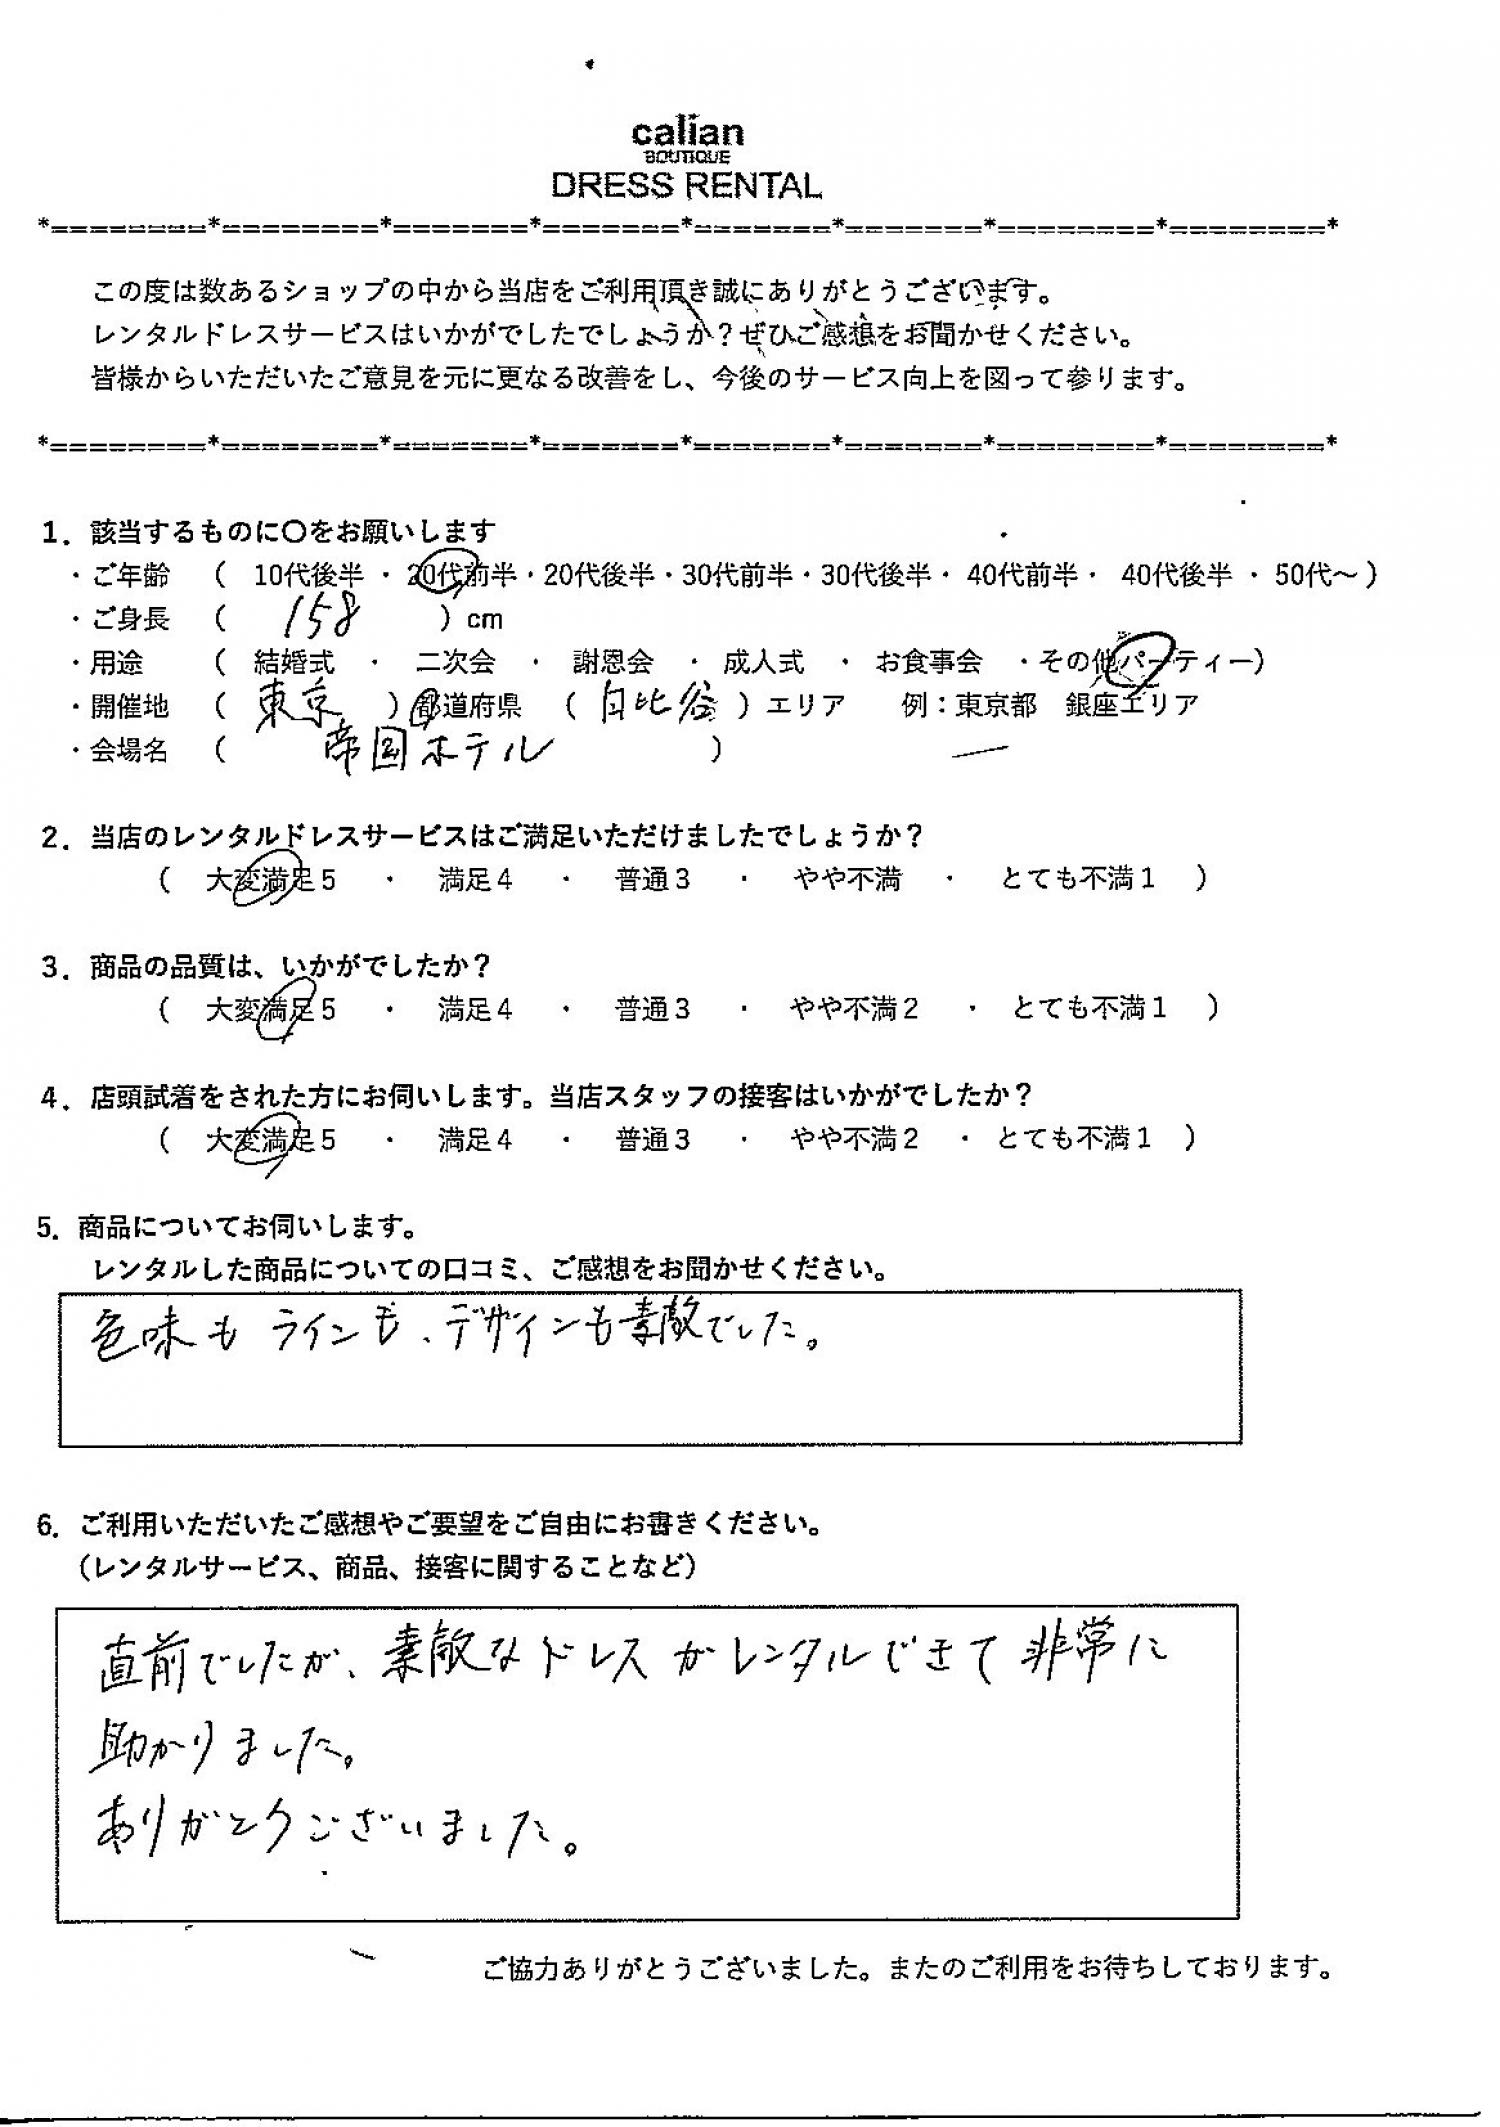 calian
BOUTIQUE
DRESS RENTAL
*========*========*=======*=======*=======*=======*========*========*
この度は数あるショップの中から当店をご利用頂き誠にありがとうございます。
レンタルドレスサービスはいかがでしたでしょうか？ぜひご感想をお聞かせください。
皆様からいただいたご意見を元に更なる改善をし、今後のサービス向上を図って参ります。
*========*========*=======*=======*=======*=======*========*========*
1．該当するものに〇をお願いします
・ご年齢 （ 10代後半 ・ 20代前半・20代後半・30代前半・30代後半・ 40代前半・ 40代後半 ・ 50代～ ）
・ご身長 （ 158 ）cm
・用途 （ 結婚式 ・ 二次会 ・ 謝恩会 ・ 成人式 ・ お食事会 ・その他パーティー）
・開催地 （ 東京 ）都道府県 （ 日比谷 ）エリア 例：東京都 銀座エリア
・会場名 （ 帝国ホテル ）
2．当店のレンタルドレスサービスはご満足いただけましたでしょうか？
（ 大変満足5 ・ 満足4 ・ 普通3 ・ やや不満 ・ とても不満1 ）
3．商品の品質は、いかがでしたか？
（ 大変満足5 ・ 満足4 ・ 普通3 ・ やや不満2 ・ とても不満1 ）
4．店頭試着をされた方にお伺いします。当店スタッフの接客はいかがでしたか？
（ 大変満足5 ・ 満足4 ・ 普通3 ・ やや不満2 ・ とても不満1 ）
5．商品についてお伺いします。
レンタルした商品についての口コミ、ご感想をお聞かせください。
色味も ラインも、デザインも素敵でした。
6．ご利用いただいたご感想やご要望をご自由にお書きください。
（レンタルサービス、商品、接客に関することなど）
直前でしたが、素敵なドレスがレンタルできて非常に
助かりました。
ありがとうございました。
ご協力ありがとうございました。またのご利用をお待ちしております。